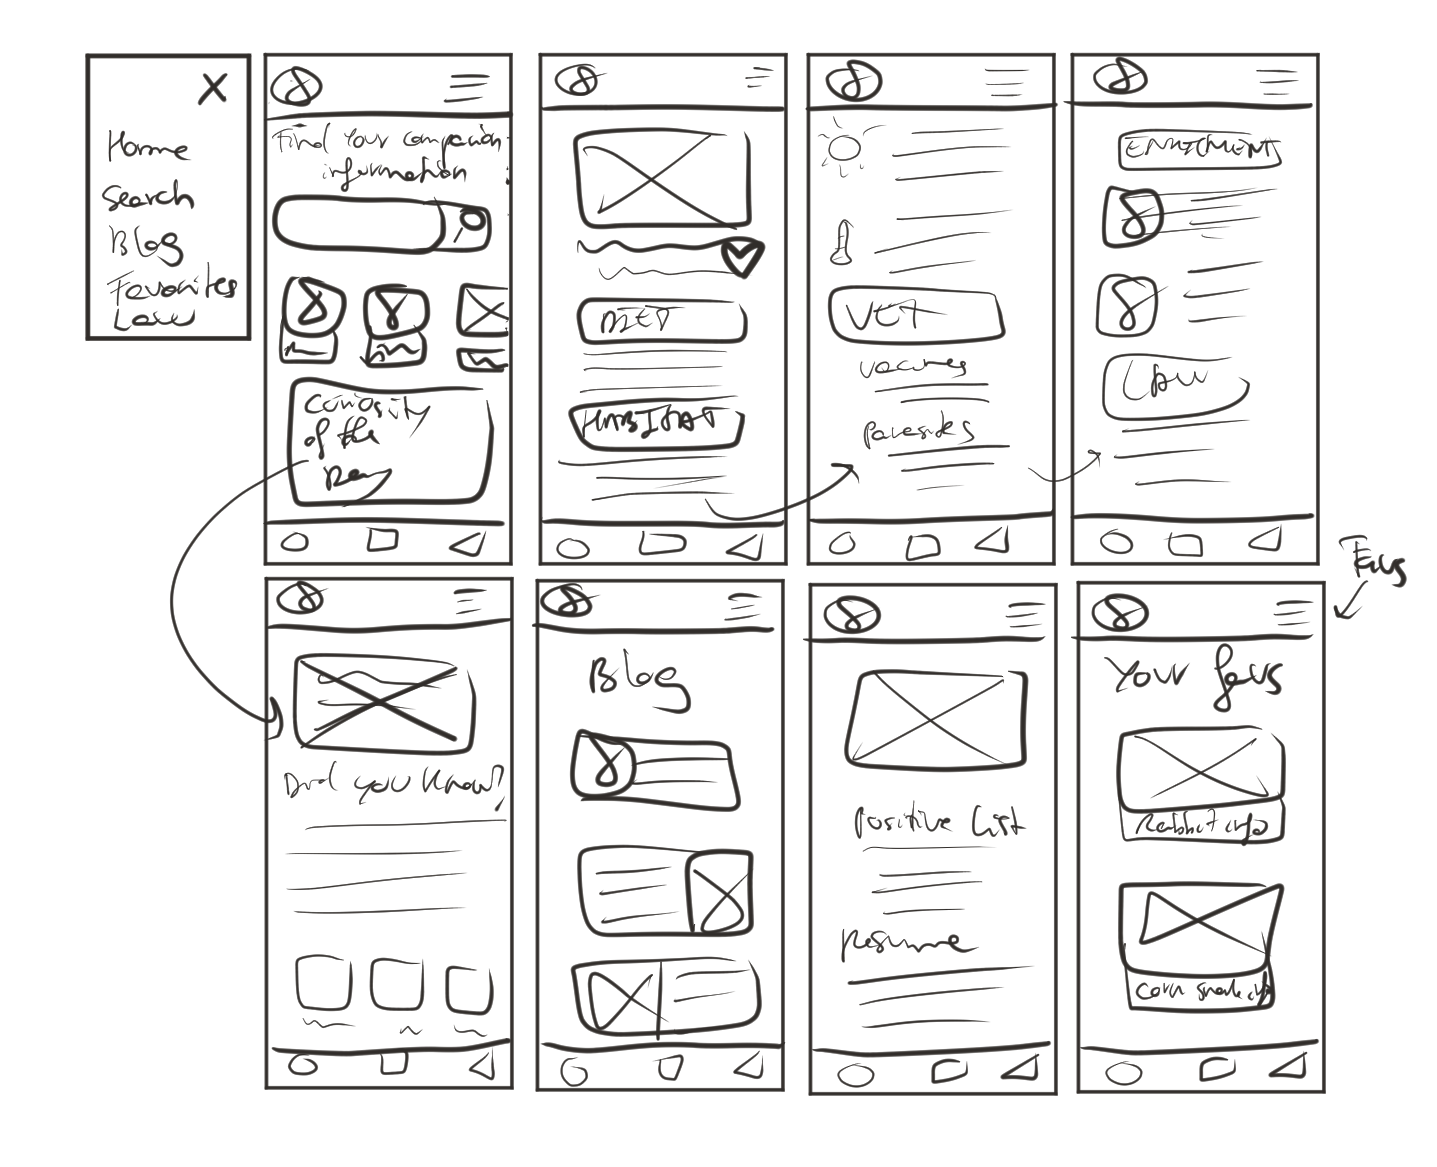 Home
Search
Blog
Favorites
Law
Find Your companion
information
Curiosity
of the
Day
DIET
HABITAT
VET
vaccines
parasites
ENRICHMENT
LAW
Favs
Did you know?
Blog
Positive List
Resume
Your favs
Rabbit info
Corn snake info